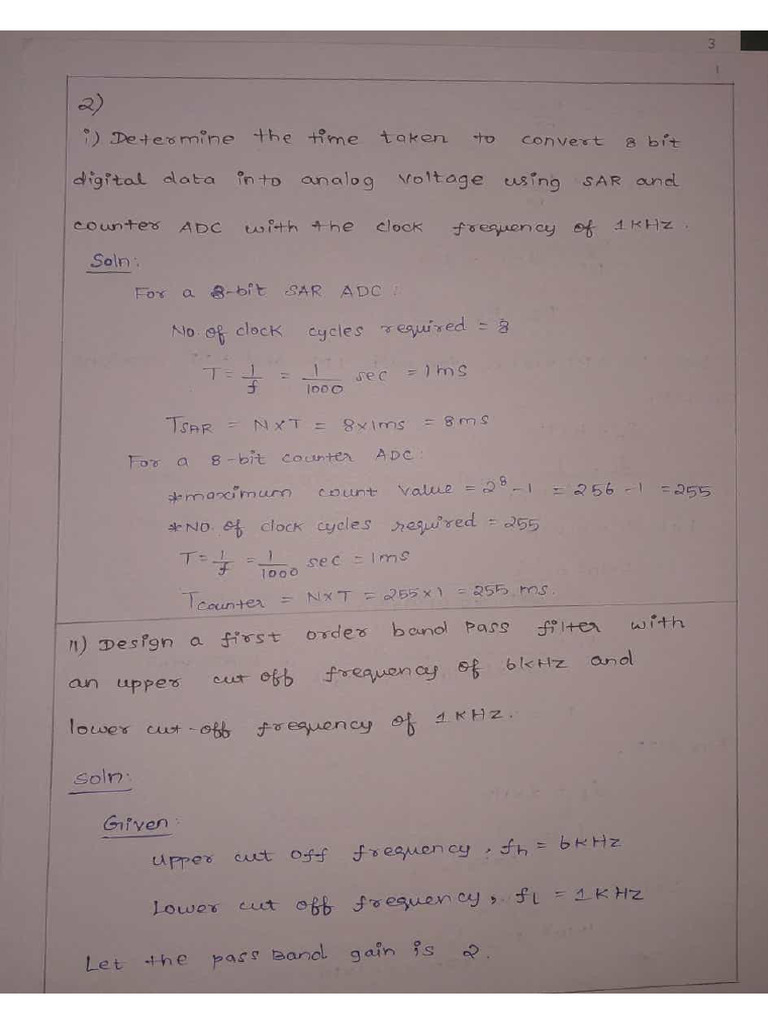 3
1
2)
i) Determine the time taken to convert 8 bit
digital data into analog voltage using SAR and
counter ADC with the clock frequency of 1KHz.
Soln:
For a 8-bit SAR ADC:
No. of clock cycles required = 8
T = 1/f = 1/1000 sec = 1ms
TSAR = N×T = 8×1ms = 8ms
For a 8-bit counter ADC:
*maximum count value = 2⁸-1 = 256-1 = 255
*No. of clock cycles required = 255
T = 1/f = 1/1000 sec = 1ms
Tcounter = N×T = 255×1 = 255 ms.
11) Design a first order band pass filter with
an upper cut off frequency of 6kHz and
lower cut-off frequency of 1KHz.
Soln:
Given:
Upper cut off frequency, fh = 6KHz
Lower cut off frequency, fl = 1KHz
Let the pass Band gain is 2.